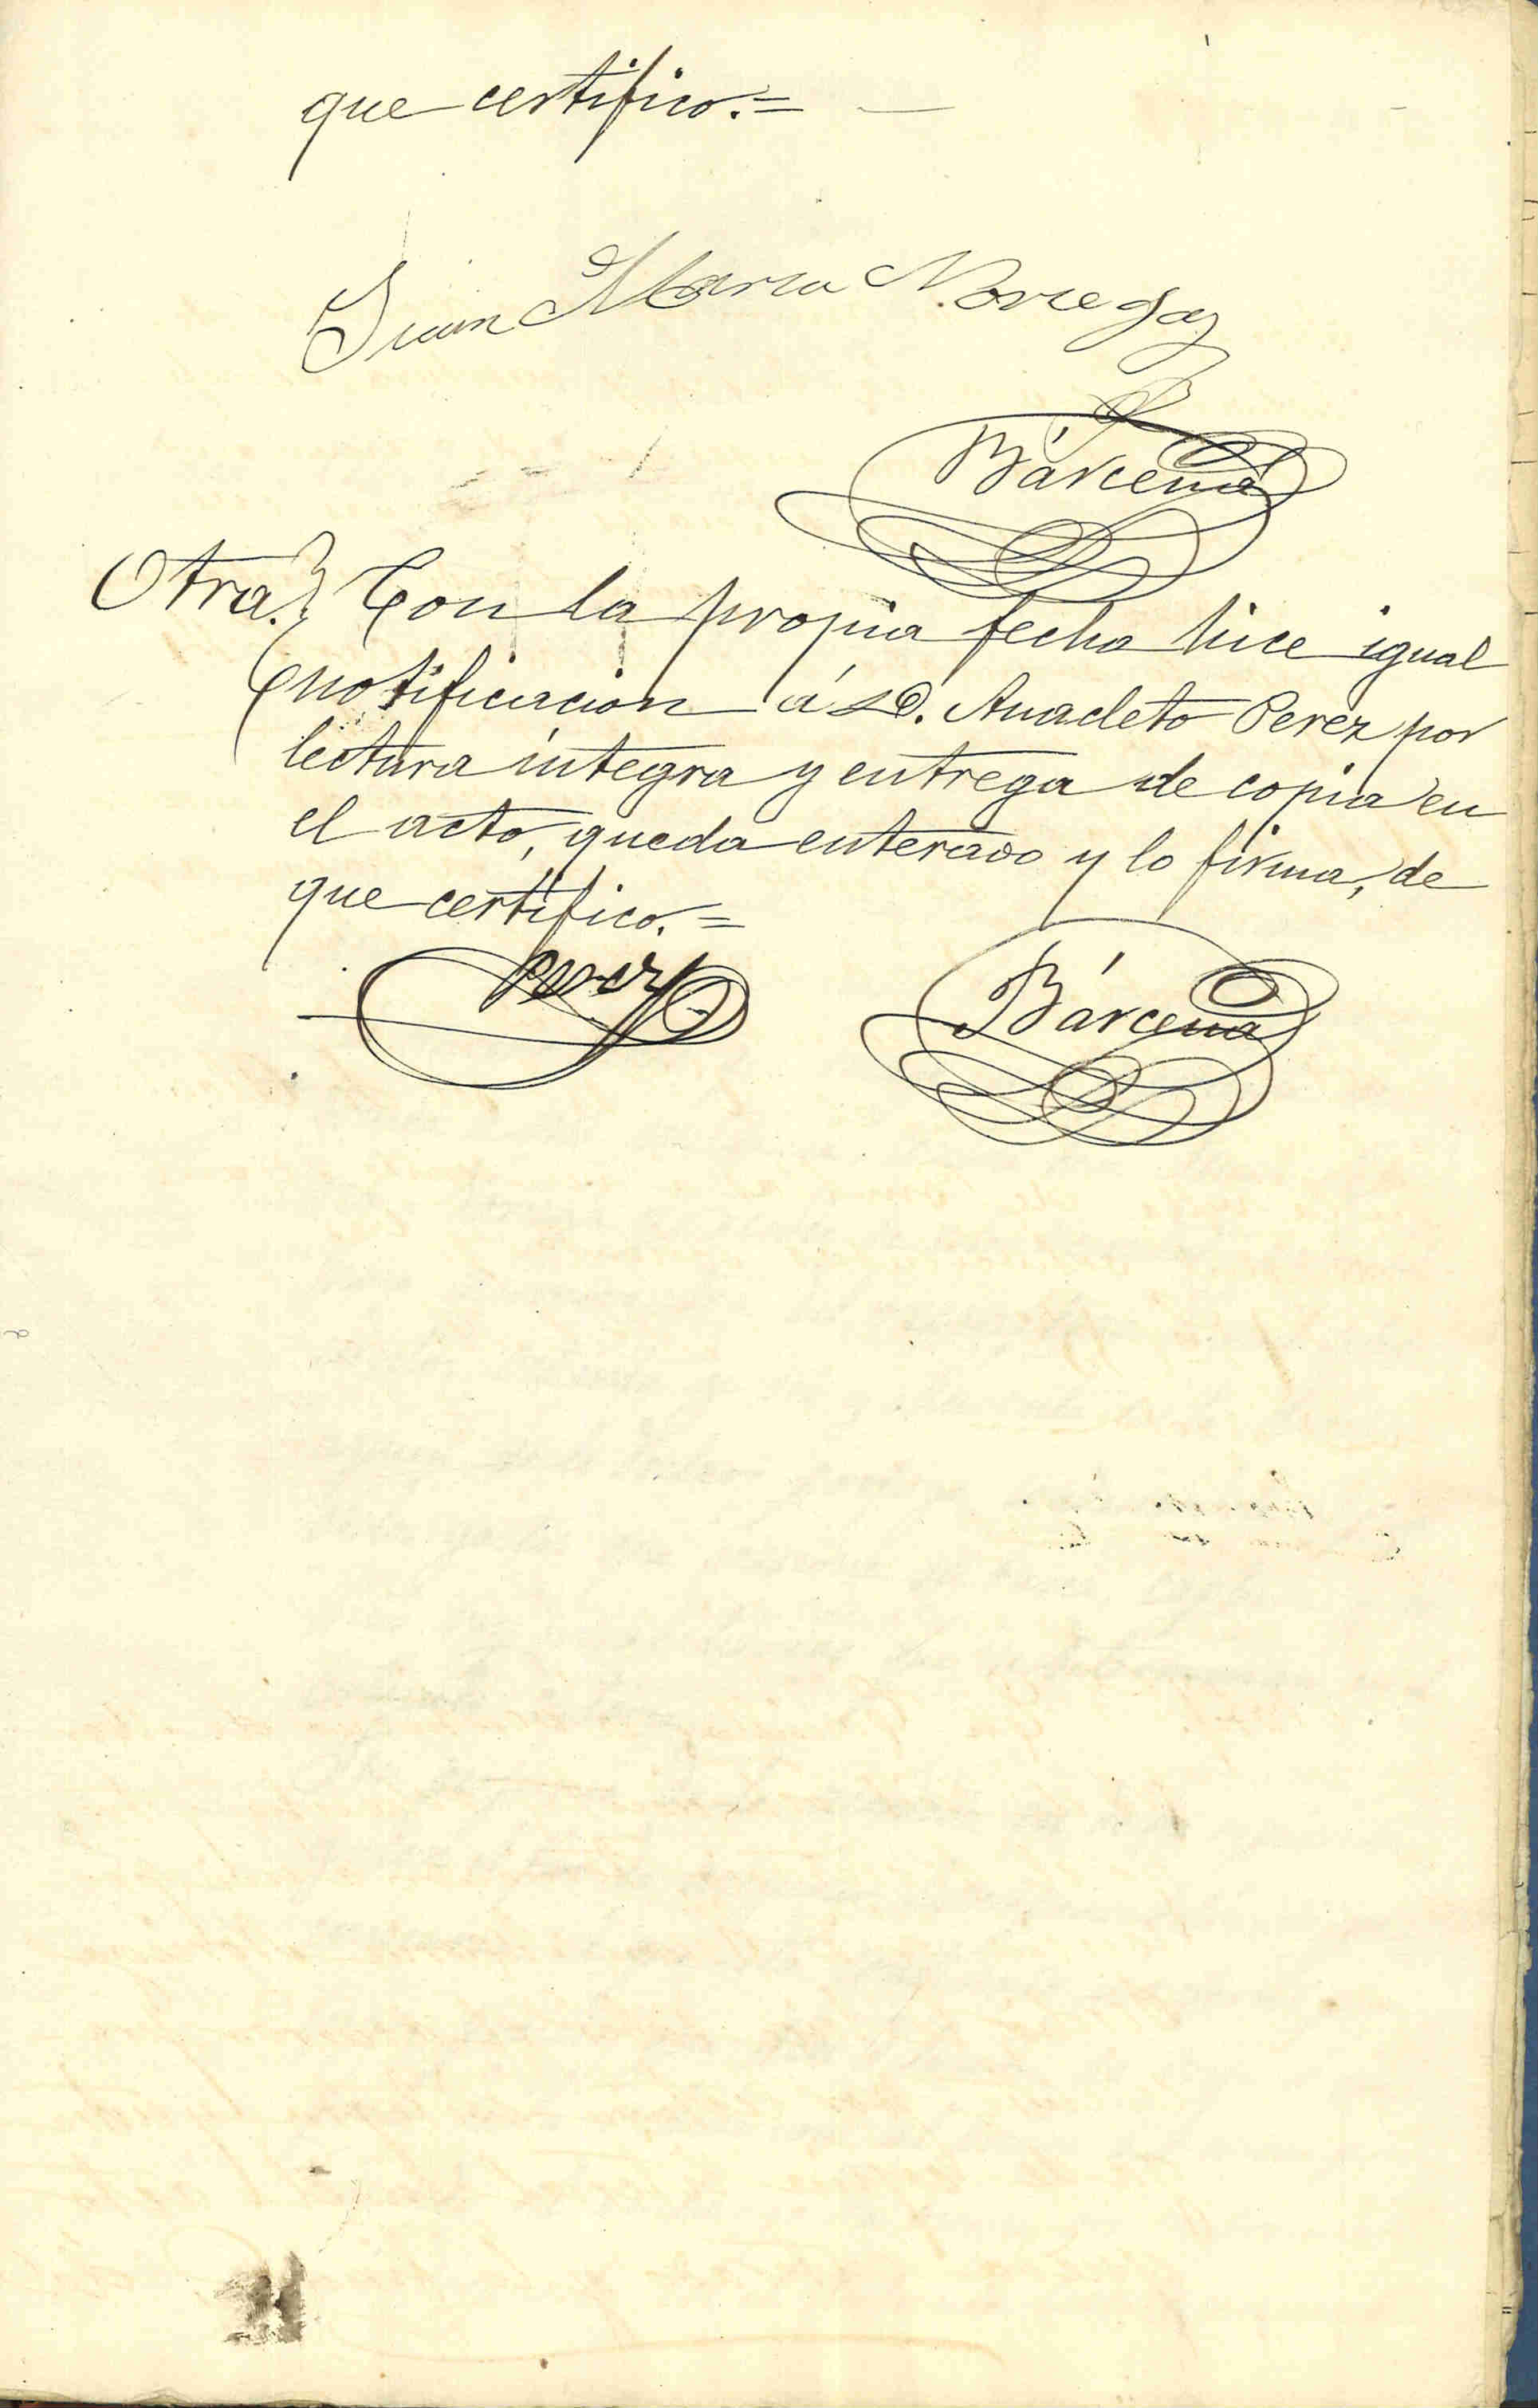 que certifico.=
Juan Maria Noriega
Bárcena
Otra.} Con la propia fecha hice igual
notificacion á D. Anacleto Perez por
lectura integra y entrega de copia en
el acto, queda enterado y lo firma, de
que certifico.=
Perez
Bárcena